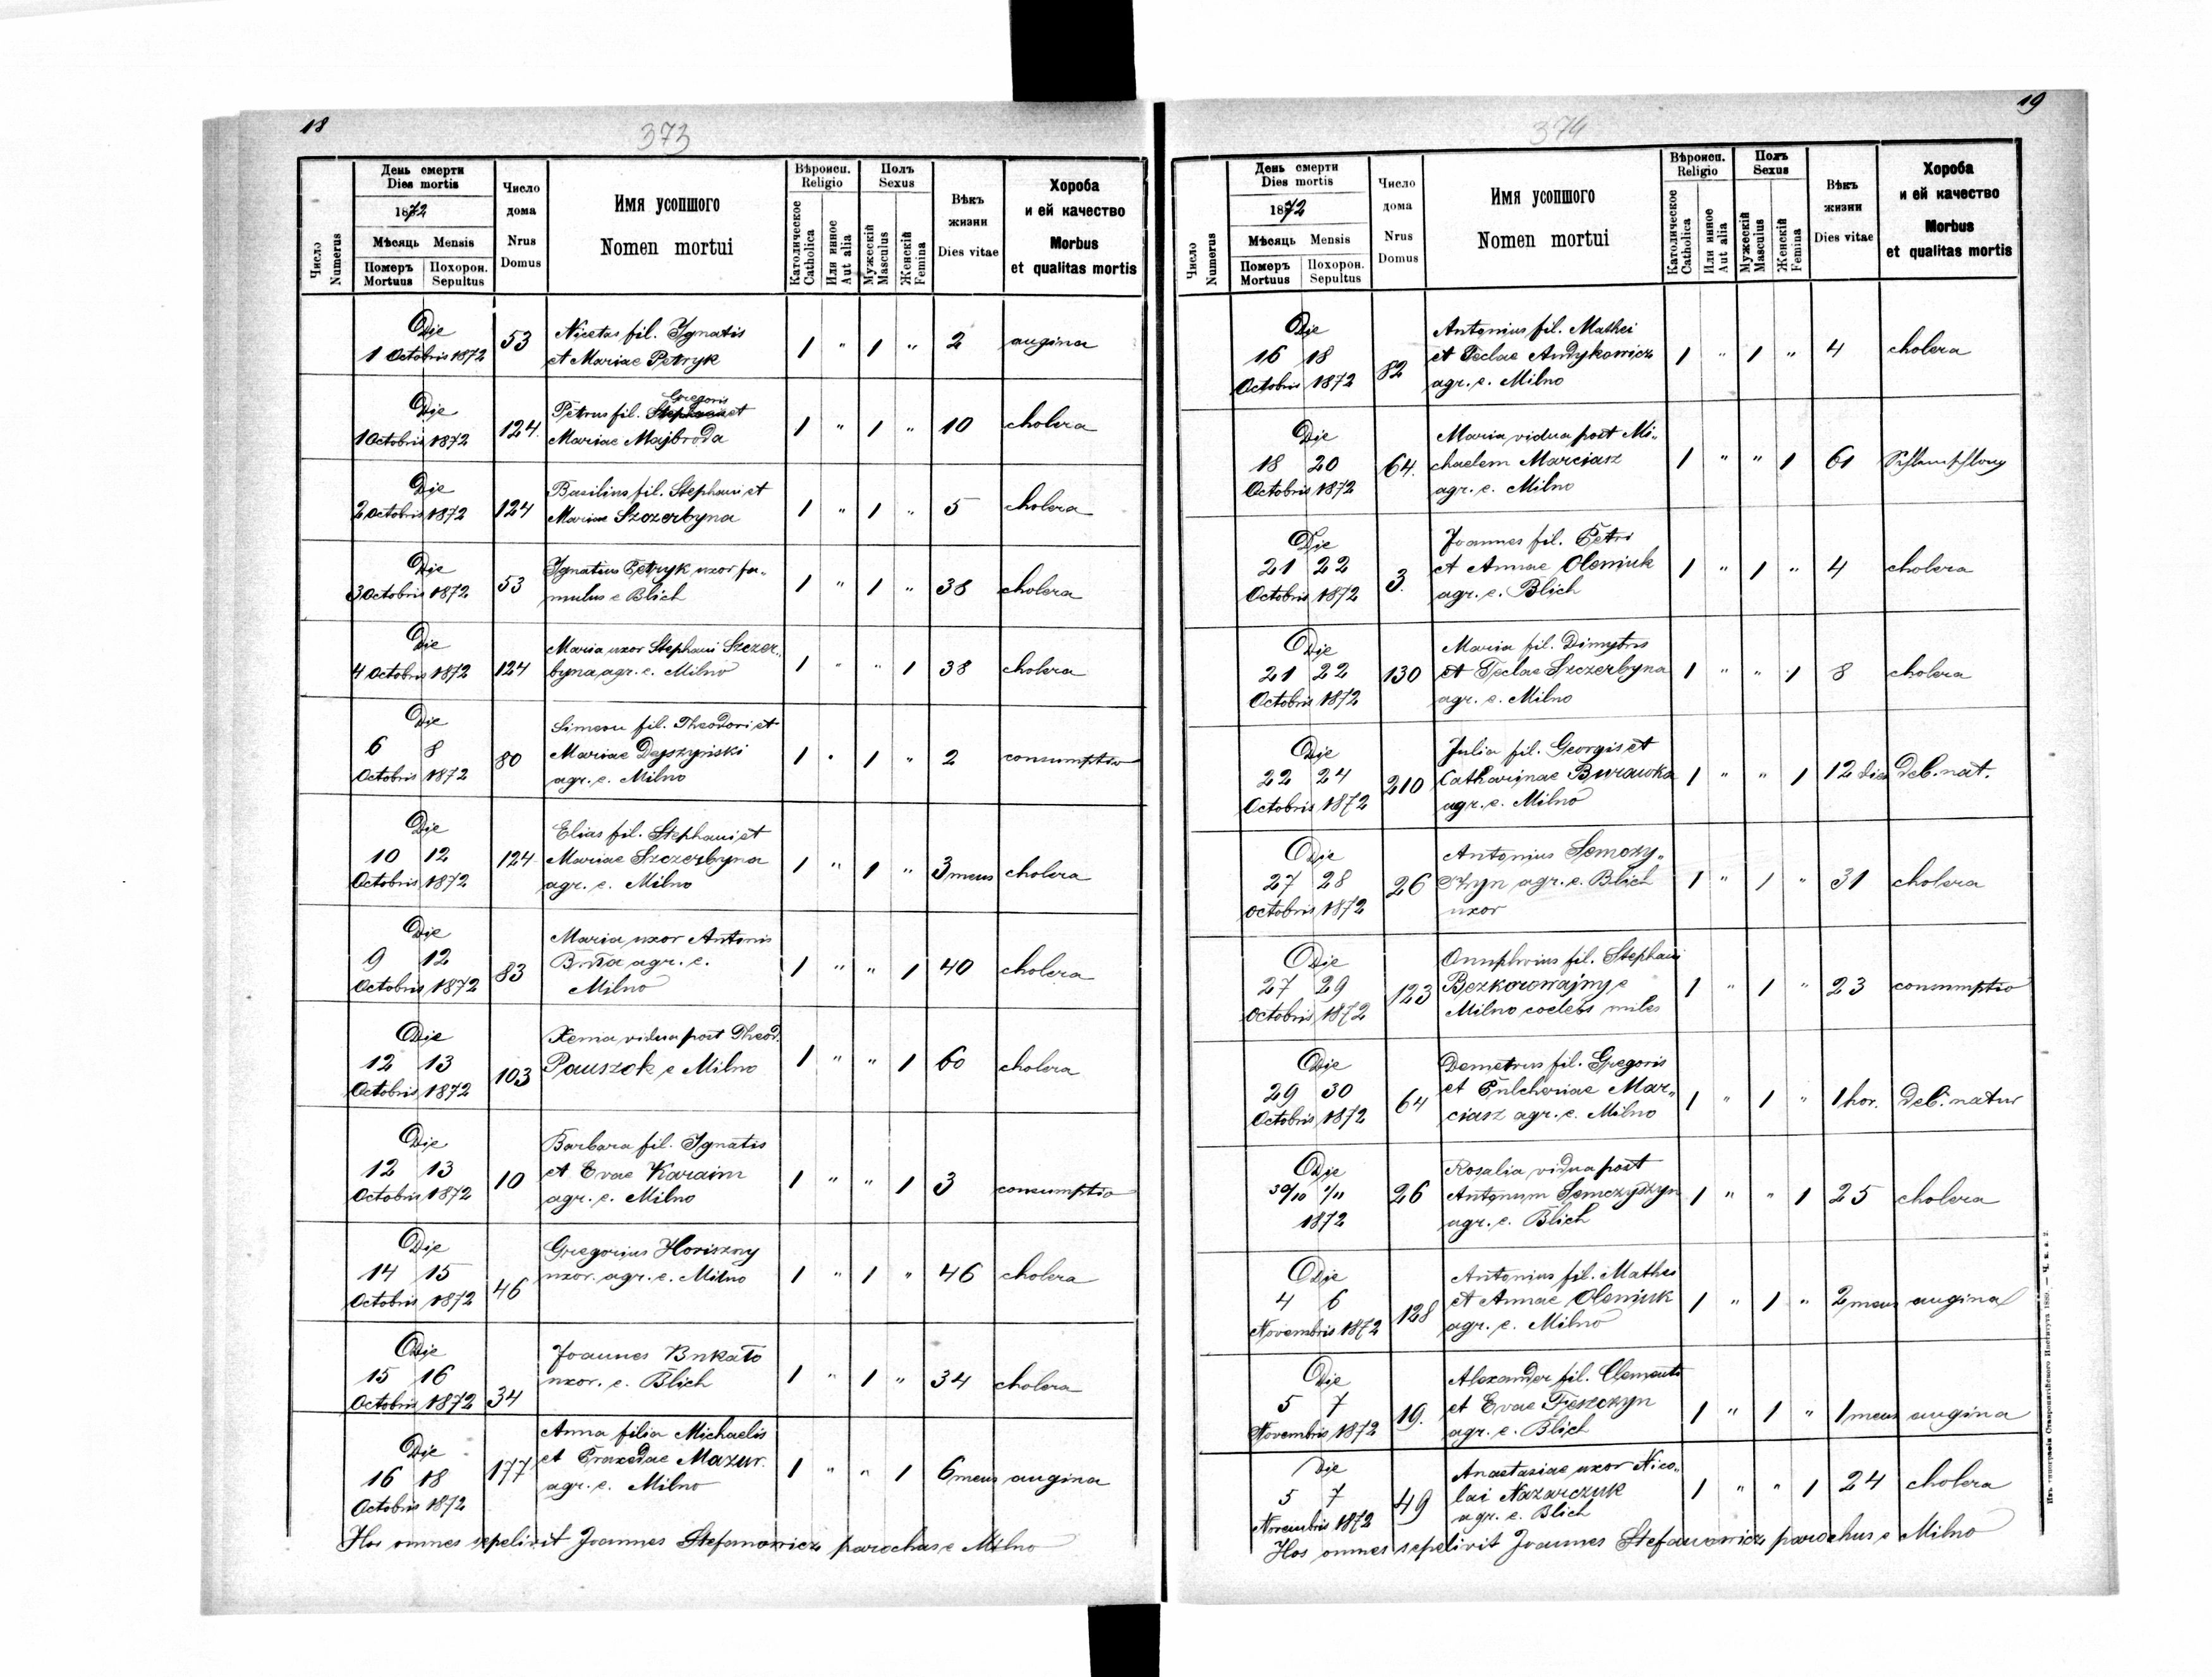 18
373
Число Numerus
День смерти
Dies mortis
1872
Мѣсяць Mensis
Померъ Mortuus
Похорон. Sepultus
Число дома
Nrus Domus
Имя усопшого
Nomen mortui
Вѣроисп. Religio
Католическое Catholica
Или инное Aut alia
Полъ Sexus
Мужескій Masculus
Женскій Femina
Вѣкъ жизни
Dies vitae
Хороба и ей качество
Morbus et qualitas mortis
Die
1 Octobris 1872 53 Nicetas fil. Ignatis 1 " 1 " 2 augina
et Mariae Petryk
Die Gregoris
1 Octobris 1872 124. Petrus fil. Stephani et 1 " 1 " 10 cholera
Mariae Majbroda
Die Basilius fil. Stephani et
2 Octobris 1872 124 Mariae Szczerbyna 1 " 1 " 5 cholera
Die Ignatius Petryk uxor fa„
3 Octobris 1872 53 mulus e Blich 1 " 1 " 38 cholera
Die Maria uxor Stephani Szczer„
4 Octobris 1872 124 byna agr. e. Milno 1 " " 1 38 cholera
Die Simeon fil. Theodori et
6 8 80 Mariae Dejszyński 1 " 1 " 2 consumptio
Octobris 1872 agr. e. Milno
Die Elias fil. Stephani et
10 12 124 Mariae Szczerbyna 1 " 1 " 3 mens cholera
Octobris 1872 agr. e. Milno
Die Maria uxor Antonis
9 12 83 agr. e. 1 " " 1 40 cholera
Octobris 1872 Milno
Die Xenia vidua post Theod.
12 13 103 Pauszok e Milno 1 " " 1 60 cholera
Octobris 1872
Die Barbara fil. Ignatis
12 13 10 et Evae Karaim 1 " " 1 3 consumptio
Octobris 1872 agr. e. Milno
Die Gregorius Horiszny
14 15 46 uxor. agr. e. Milno 1 " 1 " 46 cholera
Octobris 1872
Die Joannes Bukato
15 16 34 uxor. e. Blich 1 " 1 " 34 cholera
Octobris 1872
Anna filia Michaelis
Die et Praxedae Mazur.
16 18 177 agr. e. Milno 1 " " 1 6 mens augina
Octobris 1872
Hos omnes sepelivit Joannes Stefanowicz parochus e Milno
19
374
Число Numerus
День смерти
Dies mortis
1872
Мѣсяць Mensis
Померъ Mortuus
Похорон. Sepultus
Число дома
Nrus Domus
Имя усопшого
Nomen mortui
Вѣроисп. Religio
Католическое Catholica
Или инное Aut alia
Полъ Sexus
Мужескій Masculus
Женскій Femina
Вѣкъ жизни
Dies vitae
Хороба и ей качество
Morbus et qualitas mortis
Die Antonius fil. Mathei
16 18 82 et Teclae Andykowicz 1 " 1 " 4 cholera
Octobris 1872 agr. e. Milno
Die Maria vidua post Mi„
18 20 64. chaelem Marciasz 1 " " 1 61
Octobris 1872 agr. e. Milno
Die Joannes fil. Petri
21 22 3. et Annae Oleniuk 1 " 1 " 4 cholera
Octobris 1872 agr. e. Blich
Die Maria fil. Dimytris
21 22 130 et Teclae Szczerbyna 1 " " 1 8 cholera
Octobris 1872 agr. e. Milno
Die Julia fil. Georgis et
22 24 210 Catharinae Burawka 1 " " 1 12 dies deb. nat.
Octobris 1872 agr. e. Milno
Die Antonius Semczy„
27 28 26 szyn agr. e. Blich 1 " 1 " 31 cholera
Octobris 1872 uxor
Die Onuphrius fil. Stephani
27 29 123 Bezkorowajny e 1 " 1 " 23 consumptio
Octobris 1872 Milno coelebs miles
Die Demetrus fil. Gregoris
29 30 64 et Pulcheriae Mar„ 1 " 1 " 1 hor. deb. natur
Octobris 1872 ciasz agr. e. Milno
Die Rosalia vidua post
30/10 1/11 26 Antonium Semczyszyn 1 " " 1 25 cholera
1872 agr. e. Blich
Die Antonius fil. Mathei
4 6 128 et Annae Oleniuk 1 " 1 " 2 mens augina
Novembris 1872 agr. e. Milno
Die Alexander fil. Clementis
5 7 19. et Evae Feszczyn 1 " 1 " 1 mens augina
Novembris 1872 agr. e. Blich
Die Anastasiae uxor Nico„
5 7 49 lai Nazarczuk 1 " " 1 24 cholera
Novembris 1872 agr. e. Blich
Hos omnes sepelivit Joannes Stefanowicz parochus e Milno